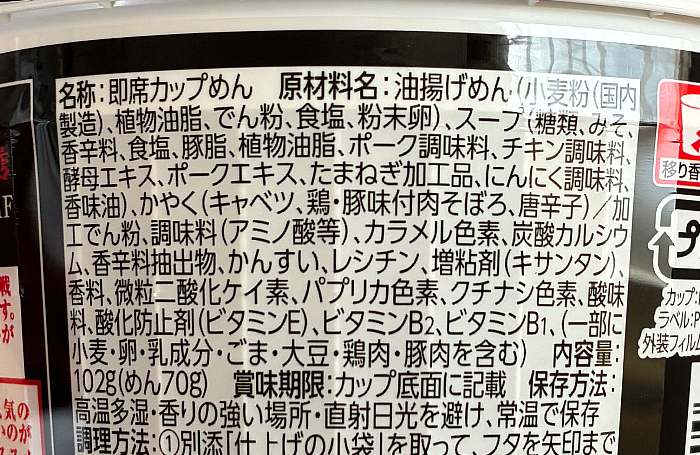 名称:即席カップめん 原材料名:油揚げめん(小麦粉(国内
製造)、植物油脂、でん粉、食塩、粉末卵)、スープ(糖類、みそ、
香辛料、食塩、豚脂、植物油脂、ポーク調味料、チキン調味料、
酵母エキス、ポークエキス、たまねぎ加工品、にんにく調味料、
香味油)、かやく(キャベツ、鶏・豚味付肉そぼろ、唐辛子)/加
工でん粉、調味料(アミノ酸等)、カラメル色素、炭酸カルシウ
ム、香辛料抽出物、かんすい、レシチン、増粘剤(キサンタン)、
香料、微粒二酸化ケイ素、パプリカ色素、クチナシ色素、酸味
料、酸化防止剤(ビタミンE)、ビタミンB2、ビタミンB1、(一部に
小麦・卵・乳成分・ごま・大豆・鶏肉・豚肉を含む) 内容量:
102g(めん70g) 賞味期限:カップ底面に記載 保存方法:
高温多湿・香りの強い場所・直射日光を避け、常温で保存
調理方法:①別添「仕上げの小袋」を取って、フタを矢印まで
移り香
プ
カップ・
ラベル:P
外装フィルム